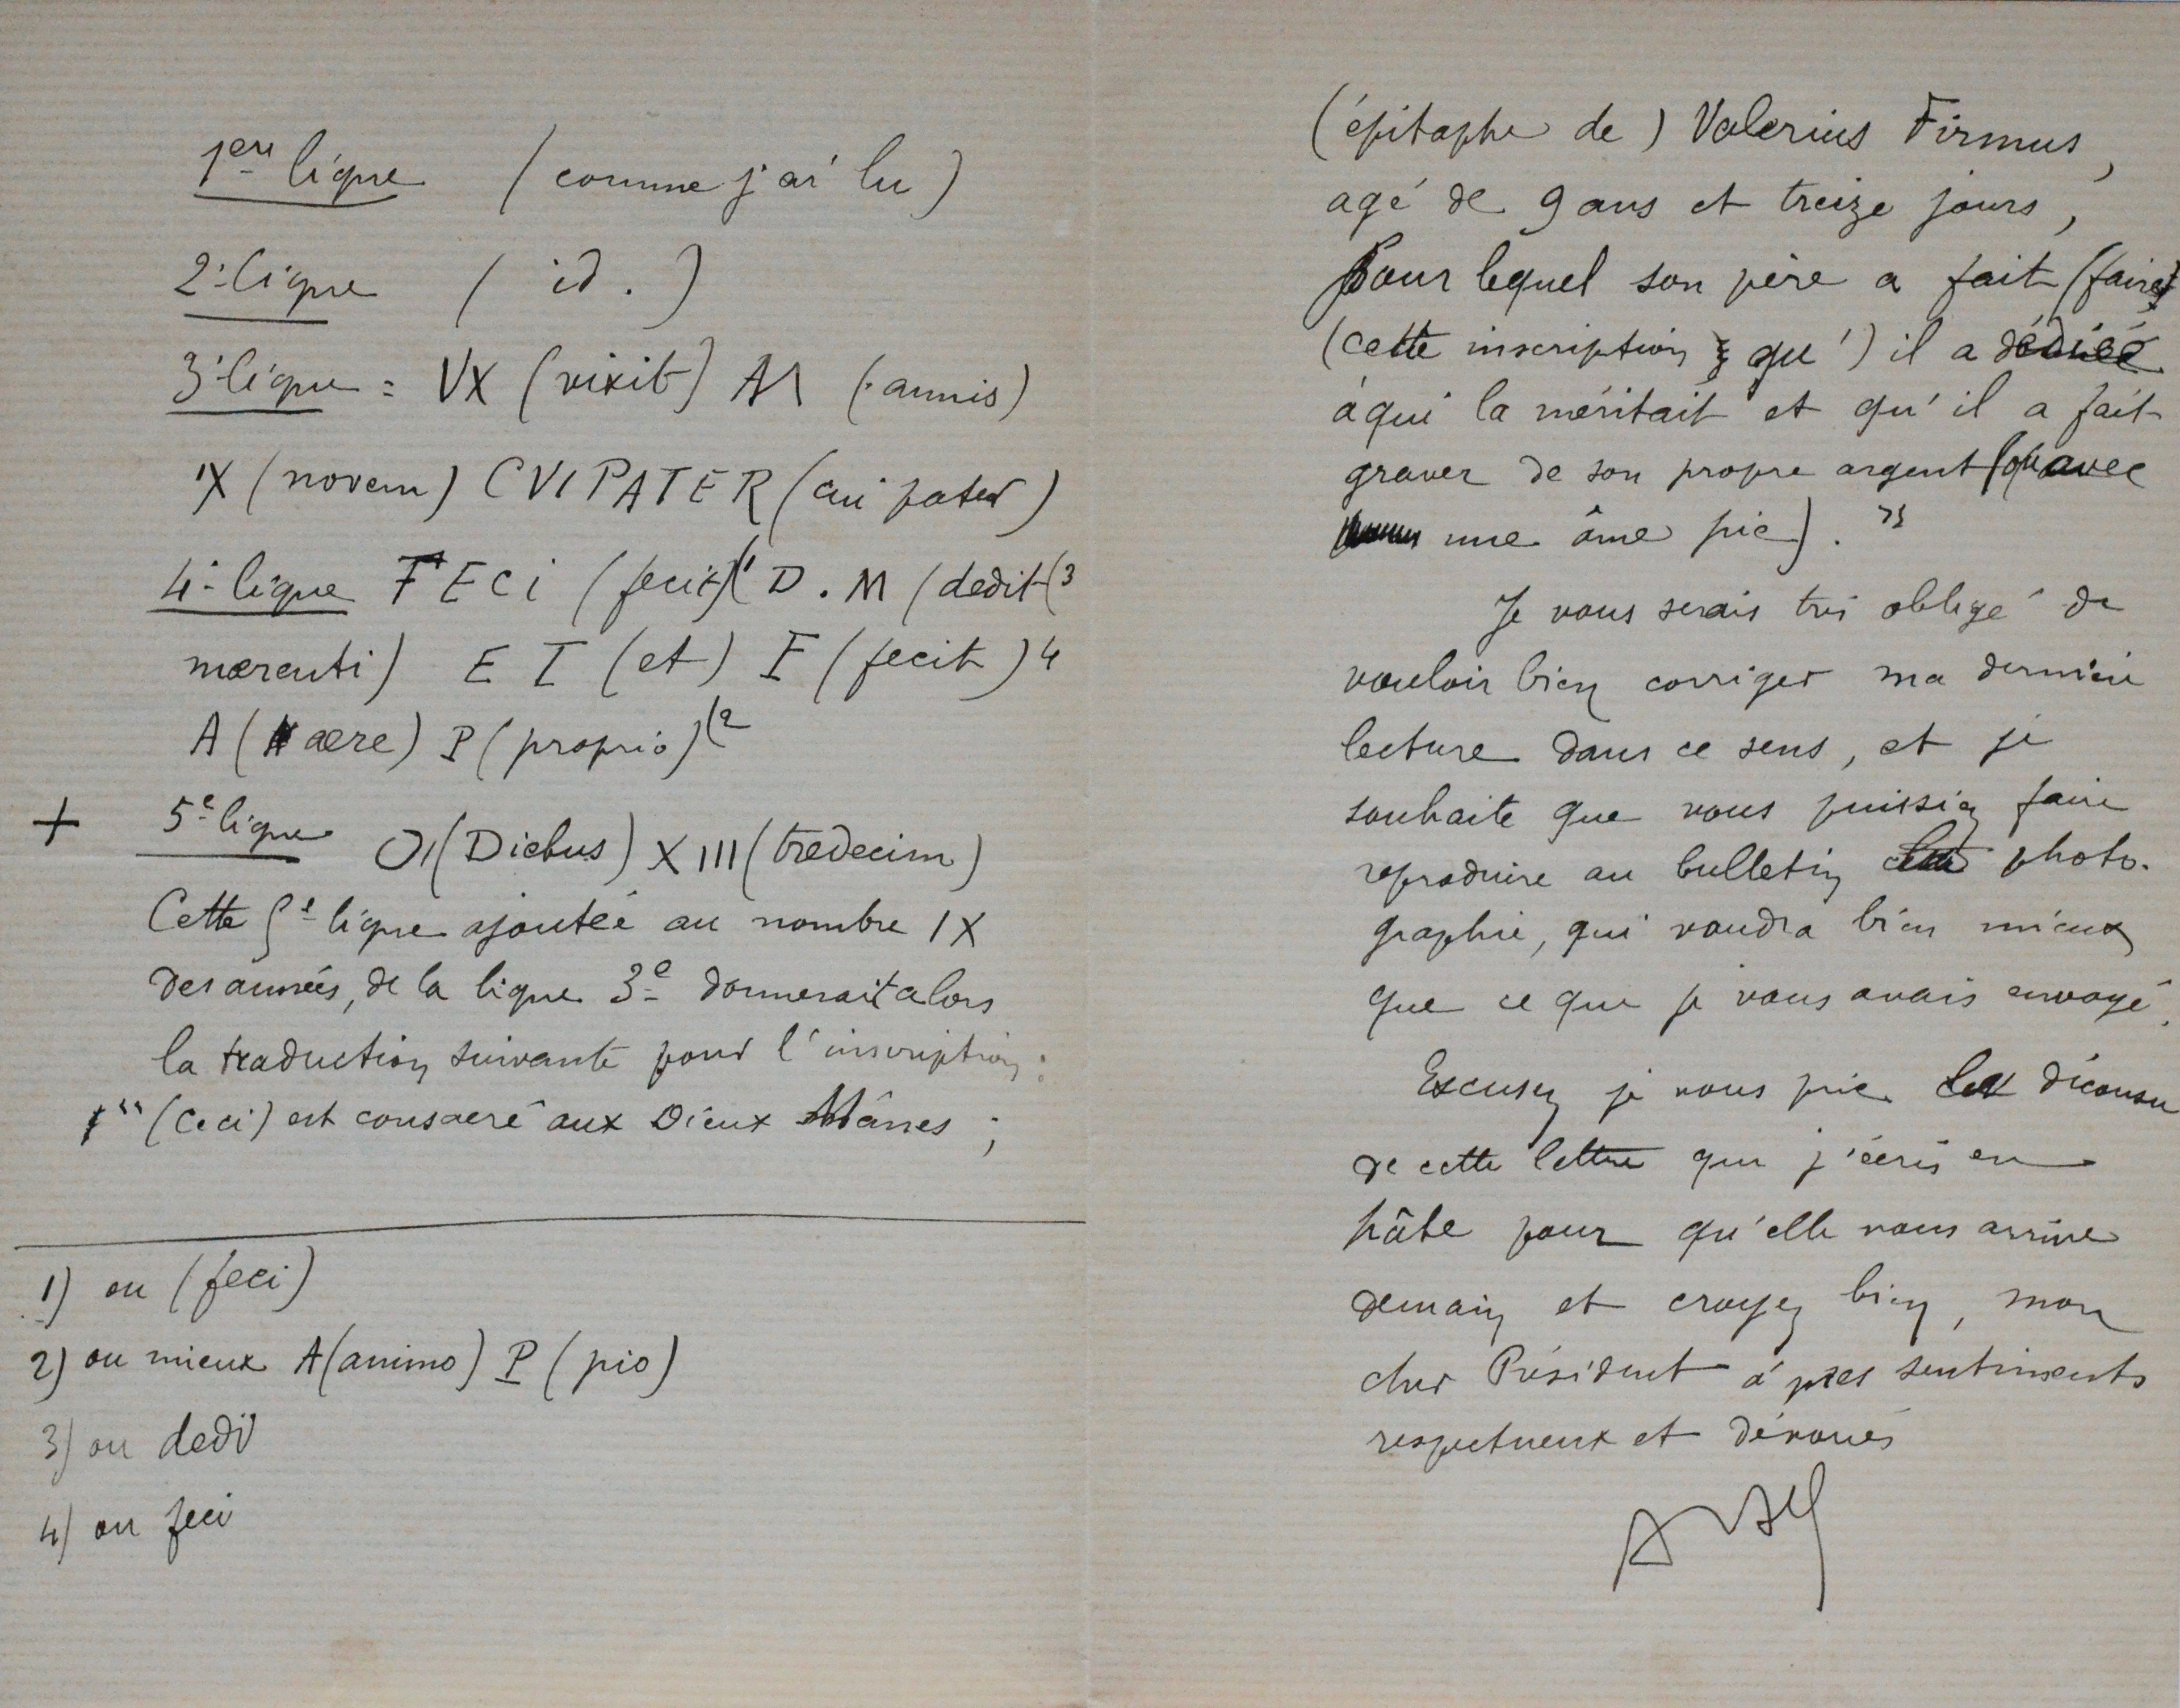 1ère ligne (comme j'ai lu)
2e ligne ( id. )
3e ligne = VX (vixit) AN (annis)
IX (novem) CVI PATER (cui pater)
4e ligne FECI (fecit)(1 D . M (dedit (3
merenti) E T (et) F (fecit) 4
A (aere) P (proprio) (2
+ 5e ligne DI (Diebus) XIII (tredecim)
Cette 5e ligne ajoutée au nombre IX
des années, de la ligne 3e donnerait alors
la traduction suivante pour l'inscription :
"(Ceci) est consacré aux Dieux Mânes ;
1) ou (feci)
2) ou mieux A (animo) P (pio)
3) ou dedi
4) ou feci
(épitaphe de) Valerius Firmus,
agé de 9 ans et treize jours,
pour lequel son père a fait (faire)
(cette inscription qu') il a dédiée
à qui la méritait et qu'il a fait
graver de son propre argent (ou avec
une âme pie). "
Je vous serais très obligé de
vouloir bien corriger ma dernière
lecture dans ce sens, et je
souhaite que vous puissiez faire
reproduire au bulletin la photo-
graphie, qui vaudra bien mieux
que ce que je vous avais envoyé.
Excusez je vous prie le décousu
de cette lettre que j'écris en
hâte pour qu'elle vous arrive
demain et croyez bien, mon
cher Président à mes sentiments
respectueux et dévoués